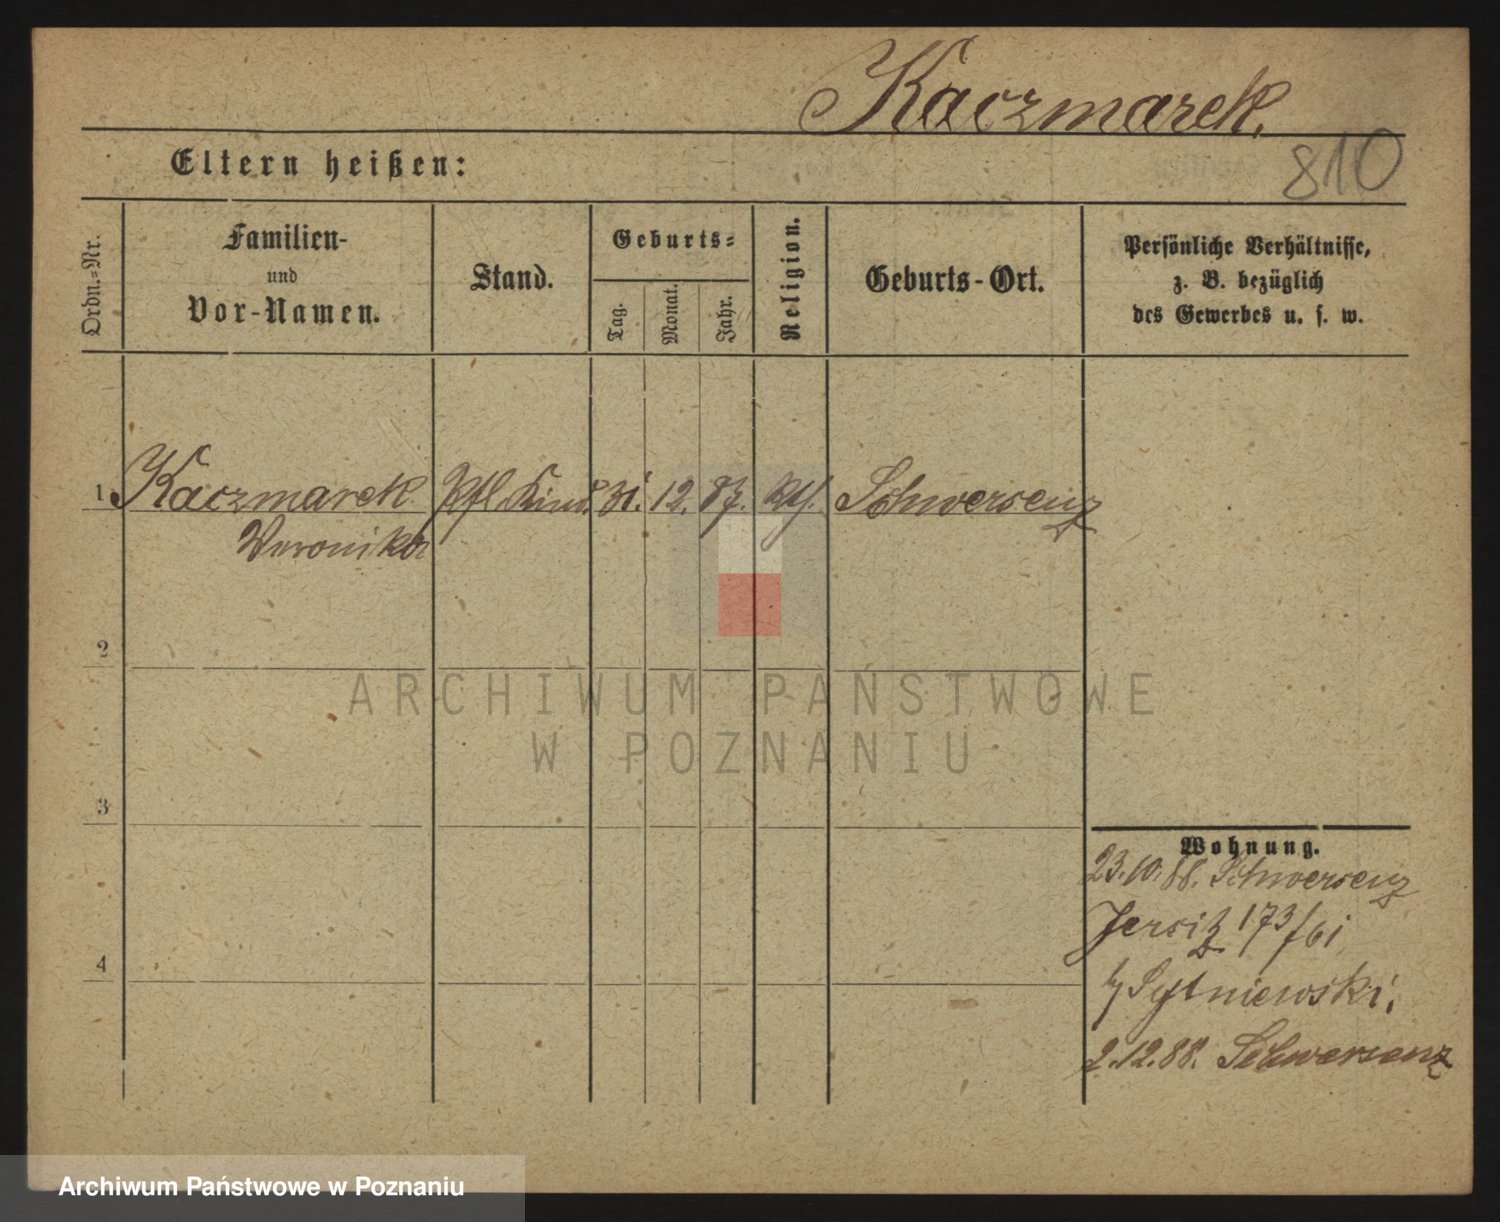 Kaczmarek.
810
Eltern heißen:
Ordn.=Nr.
Familien-
und
Vor-Namen.
Stand.
Geburts=
Tag.
Monat.
Jahr.
Religion.
Geburts-Ort.
Persönliche Verhältnisse,
z. B. bezüglich
des Gewerbes u. s. w.
1 Kaczmarek Pfl. Kind. 31. 12. 87. kth. Schwersenz
Veronika
2
3
4
Wohnung.
23.10.88. Schwersenz
Jersitz 173/61
b/ Sytniewski.
2.12.88. Schwersenz
ARCHIWUM PAŃSTWOWE
W POZNANIU
Archiwum Państwowe w Poznaniu